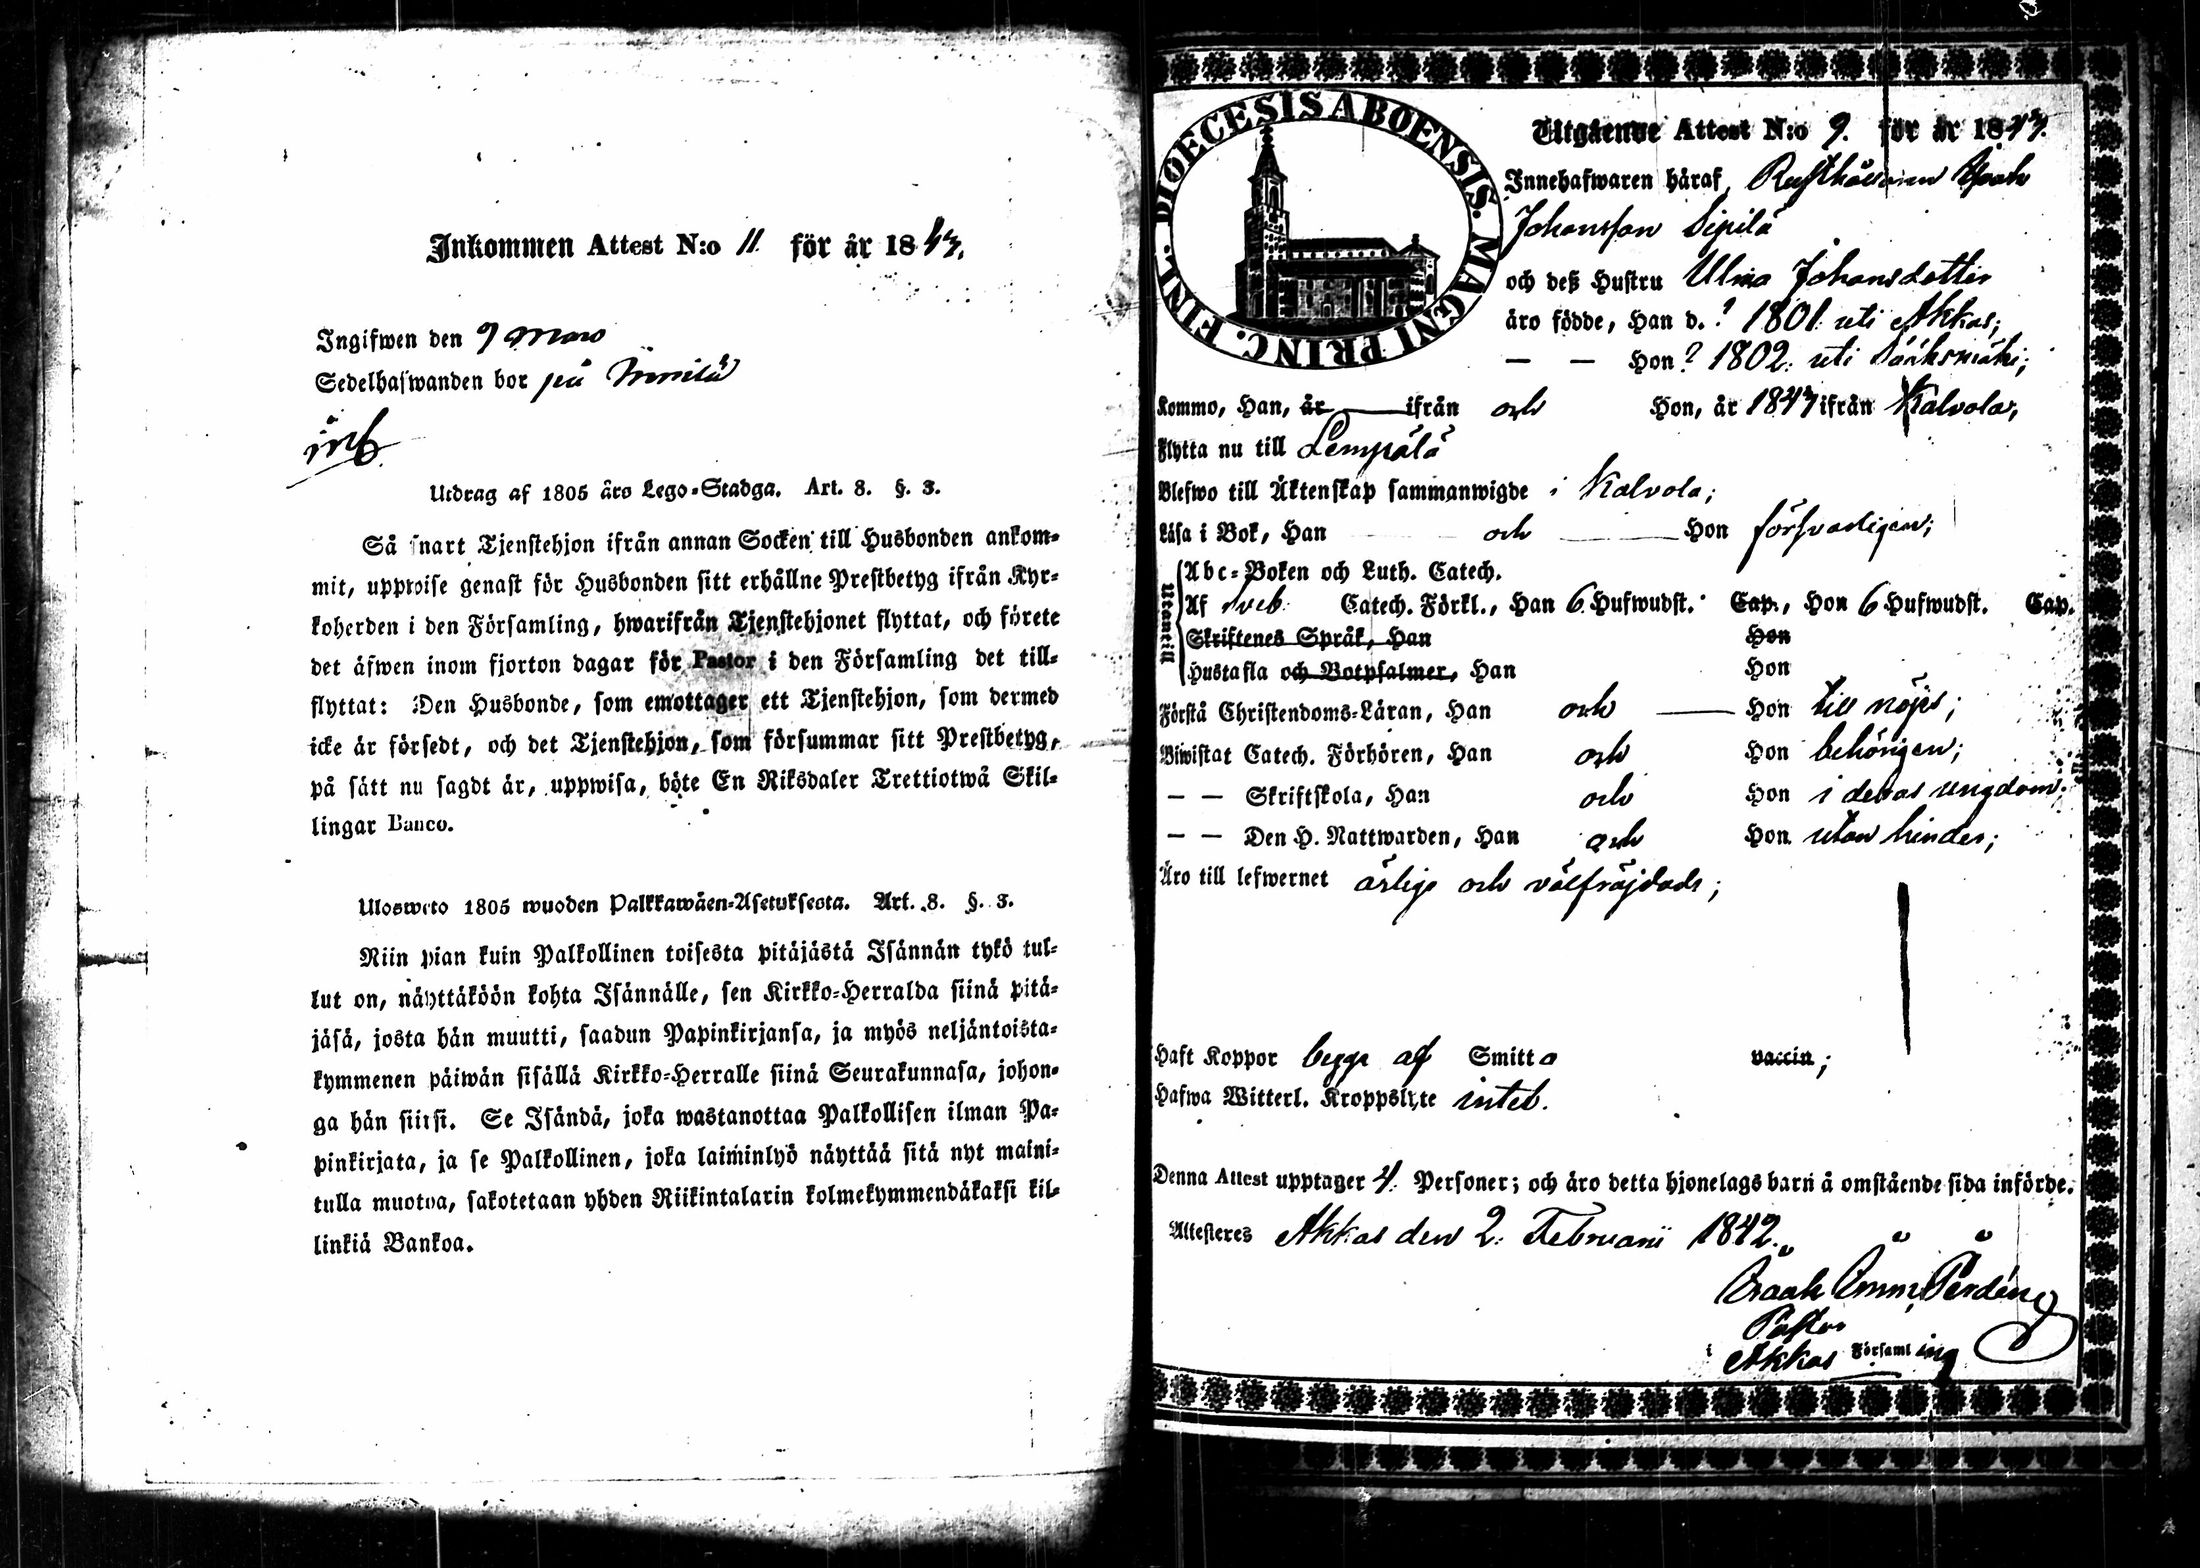 Inkommen Attest N:o 11. för år 1843.
Ingifwen den 9 Mars
Sedelhafwanden bor på
Utdrag af 1805 års Lego-Stadga. Art. 8. §. 3.
Så snart Tjenstehjon ifrån annan Socken till Husbonden ankom-
mit, uppwise genast för Husbonden sitt erhållne Prestbetyg ifrån Kyr-
koherden i den Församling, hwarifrån Tjenstehjonet flyttat, och förete
det äfwen inom fjorton dagar för Pastor i den Församling det till-
flyttat: Den Husbonde, som emottager ett Tjenstehjon, som dermed
icke är försedt, och det Tjenstehjon, som försummar sitt Prestbetyg,
på sätt nu sagdt är, uppwisa, böte En Riksdaler Trettiotwå Skil-
lingar Banco.
Ulosweto 1805 wuoden Palkkawäen-Asetuksesta. Art. 8. §. 3.
Niin pian kuin Palkollinen toisesta pitäjästä Isännän tykö tul-
lut on, näyttäköön kohta Isännälle, sen Kirkko-Herralda siinä pitä-
jäsä, josta hän muutti, saadun Papinkirjansa, ja myös neljäntoista-
kymmenen päiwän sisällä Kirkko-Herralle siinä Seurakunnasa, johon-
ga hän siirsi. Se Isändä, joka wastanottaa Palkollisen ilman Pa-
pinkirjata, ja se Palkollinen, joka laiminlyö näyttää sitä nyt maini-
tulla muotoa, sakotetaan yhden Riikintalarin kolmekymmendäkaksi kil-
linkiä Bankoa.
DIOECESIS ABOENSIS. MAGNI PRINC. FINL.
Utgående Attest N:o 9. för år 1843.
Innehafwaren häraf, Rusthållaren Isaak
Johansson Sipilä
och deß Hustru Ulrica Johansdotter
äro födde, Han d. ? 1801. uti Akkas;
— — Hon ? 1802. uti Sääksmäki;
Komma, Han, år — ifrån och Hon, år 1843 ifrån Kalvola;
Flytta nu till Lempälä
Blefwo till Äktenskap sammanwigde i Kalvola;
Läsa i Bok, Han och — Hon försvarligen;
Utantill
Abc-Boken och Luth. Catech.
Af Sveb. Catech. Förkl., Han 6 Hufwudst. Cap., Hon 6 Hufwudst. Cap.
Skriftenes Språk, Han Hon
Hustafla och Botpsalmer, Han Hon
Förstå Christendoms-Läran, Han och — Hon till nöjes;
Biwistat Catech. Förhören, Han och Hon behörigen;
— — Skriftskola, Han och Hon i deras ungdom;
— — Den H. Nattwarden, Han och Hon utan hinder;
Äro till lefwernet ärlige och välfräjdade;
Haft Koppor begge af Smitta vaccin;
Hafwa Witterl. Kroppslyte intet.
Denna Attest upptager 4. Personer; och äro detta hjonelags barn å omstående sida införde.
Attesteres Akkas den 2. Februarii 1842.
Isaak Emm. Perdén
Pastor
i Akkas Församling